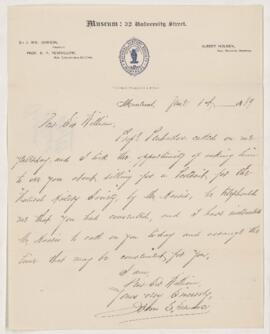 Museum: 32 University Street.
Sir J. Wm. Dawson,
President
Prof. D. P. Penhallow,
Rec. Secretary
Albert Holden,
Montreal, Jany 189
Dear Sir William,
Prof. Penhallow called on me
yesterday and I took the opportunity of asking him
to see you about sitting for a Portrait, for the
Natural History Society, by Mr. Harris, he telephoned
me that you had consented, and I have
Mr. Harris to call on you today and arrange the
time that may be convenient for you.
I am,
Dear Sir William
Yours very Sincerely,
John S. Shearer